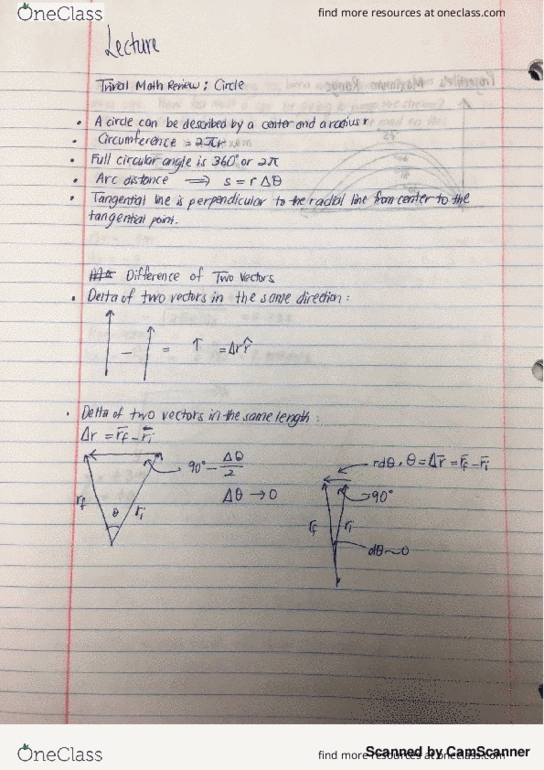 OneClass
find more resources at oneclass.com
Lecture
Trivial Math Review: Circle
• A circle can be described by a center and a radius r
• Circumference = 2πr
• Full circular angle is 360° or 2π
• Arc distance ⟹ s = r Δθ
• Tangential line is perpendicular to the radial line from center to the
tangential point.
Difference of Two Vectors
• Delta of two vectors in the same direction:
− = ↑ = Δr r̂
• Delta of two vectors in the same length:
Δr = r̄f − r̄i
90° − Δθ/2
Δθ → 0
rf θ r̄i
rdθ, θ = Δr̄ = r̄f − r̄i
90°
r̄f r̄i
dθ~0
OneClass
find more resources at oneclass.com
Scanned by CamScanner